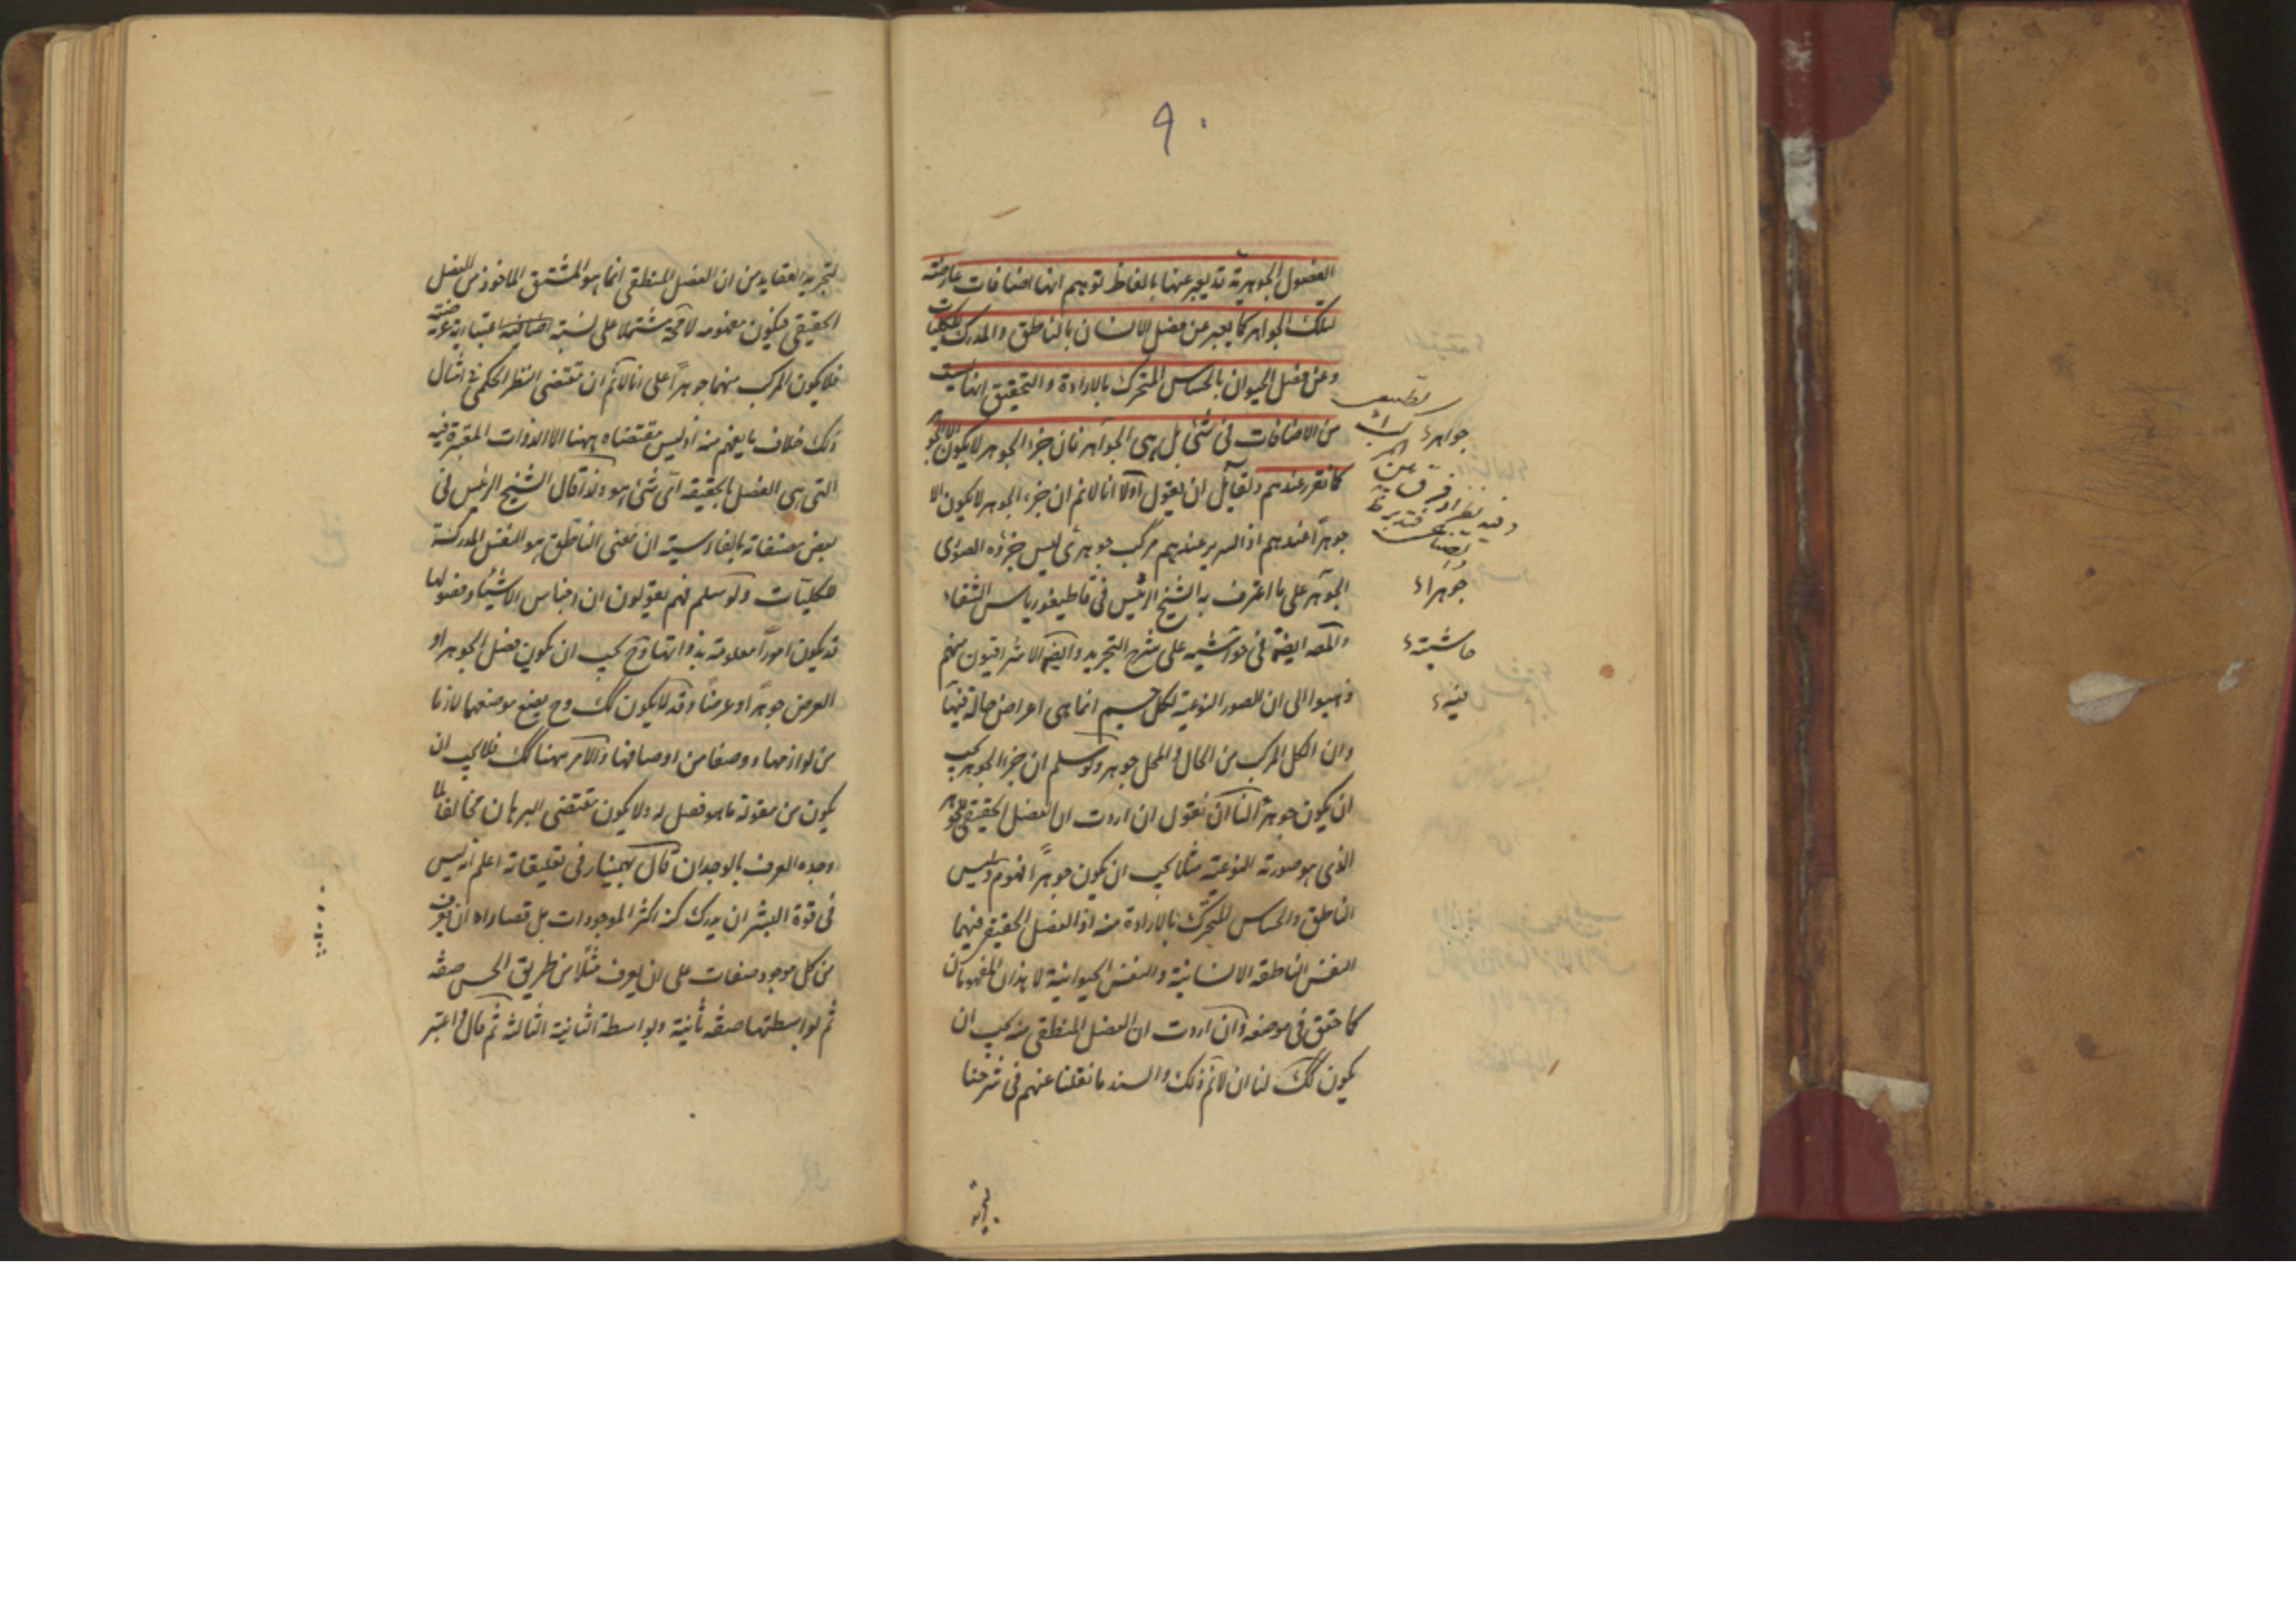 ٩٠
الفصول الجوهرية قد يعبر عنها بالفاظ توهم انها اضافات عارضة
لتلك الجواهر كما يعبر عن فصل الانسان بالناطق والمدرك للكليات
وعن فصل الحيوان بالحساس المتحرك بالارادة والتحقيق انها ليست
من الاضافات فى شئ بل هى الجواهر فان جزء الجوهر لا يكون الا الجوهر
كما تقرر عندهم ولقايل ان يقول اولا انا لانم ان جزء الجوهر لا يكون الا
جوهرا عندهم اذ السرير عندهم مركب جوهرى ليس جزؤه الصورى
الجوهر على ما اعترف به الشيخ الرئيس فى قاطيغورياس الشفاء
والمصه ايضا فى حواشيه على شرح التجريد وايضا الاشراقيون منهم
ذهبوا الى ان الصور النوعية لكل جسم انما هى اعراض حالة فيها
وان الكل المركب من الحال والمحل جوهر ولو سلم ان جزء الجوهر يجب
ان يكون جوهرا لنا ان نقول ان اردت ان الفصل الحقيقى للجوهر
الذى هو صورته النوعية مثلا يجب ان يكون جوهرا فهو م وليس
الناطق والحساس المتحرك بالارادة منه اذ الفصل الحقيقى فيهما
النفس الناطقة الانسانية والنفس الحيوانية لا هذان المفهومان
كما حقق فى موضعه وان اردت ان الفصل المنطقى منه يجب ان
يكون كك لنا ان لانم ذلك والسند ما نقلنا عنهم فى شرحنا
جواهر
وفيه نظر اذ فرق بين
جوهرا
حاشيته
فيه
لتجريد العقايد من ان الفصل المنطقى انما هو المشتق الماخوذ من الفصل
الحقيقى فيكون مفهومه لا محة مشتملا على نسبة اضافية اعتبارية عرضية
فلا يكون المركب منهما جوهرا على انا لانم ان مقتضى النظر الحكمى فى امثال
ذلك خلاف ما يفهم منه اذ ليس مقتضاه ههنا الا الذوات المعتبرة فيه
التى هى الفصل بالحقيقة اى شئ هو ولذا قال الشيخ الرئيس فى
بعض مصنفاته بالفارسية ان معنى الناطق هو النفس المدركة
للكليات ولو سلم فهم يقولون ان اجناس الاشياء وفصولها
قد يكون امورا معلومة بذواتها وح يجب ان يكون فصل الجوهر او
العرض جوهرا او عرضا وقد لا يكون كك وح يضع موضعها لازما
من لوازمها ووصفا من اوصافها والامر ههنا كك فلا يجب ان
يكون من مقولة ما هو فصل له ولا يكون مقتضى البرهان مخالفا لما
وجده العرف بالوجدان قال بهمنيار فى تعليقاته اعلم انه ليس
فى قوة البشر ان يدرك كنه اكثر الموجودات بل قصاراه ان يعرف
من كل موجود صفات على ان يعرف مثلا من طريق الحس صفه
ثم بواسطتها صفه ثانية وبواسطة الثانية الثالثة ثم قال واعتبر